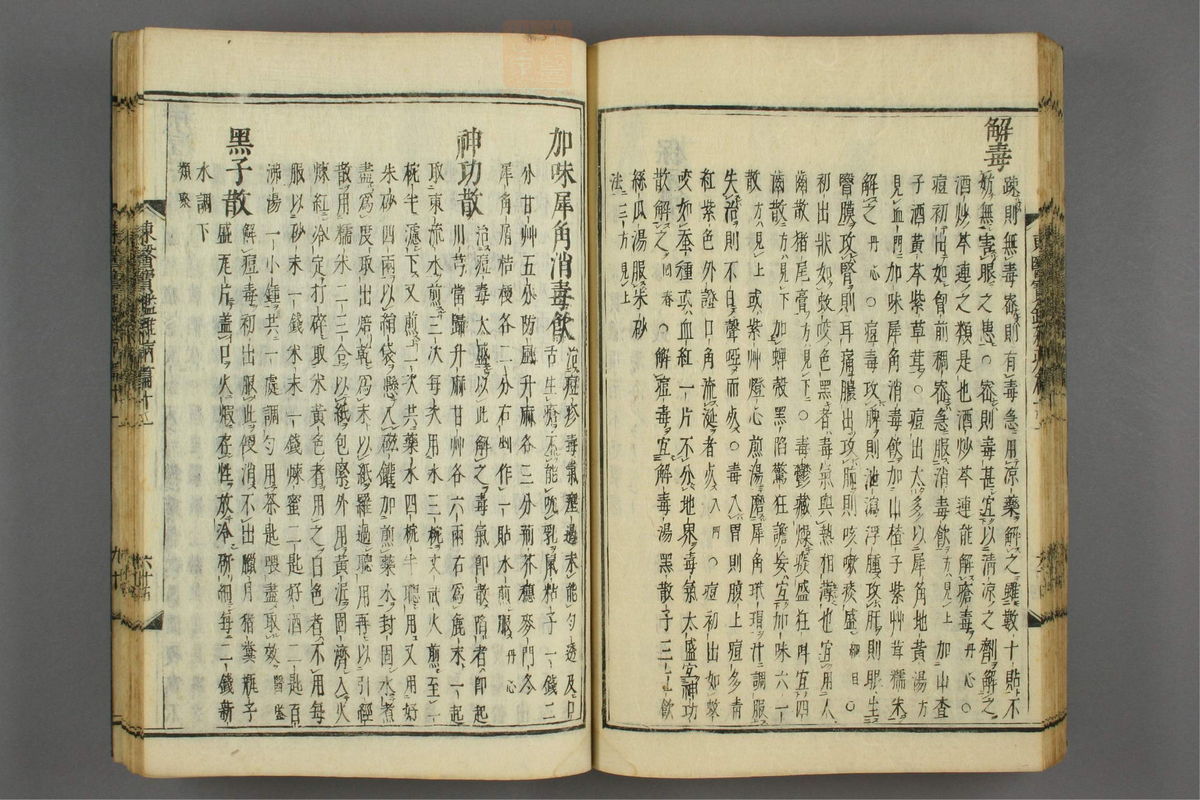 解毒
疎則無毒密則有毒急用涼藥解之雖數十貼不
妨無害眼之患○密則毒甚宜以清涼之劑解之
酒炒芩連之類是也酒炒芩連能解瘡毒丹心○
痘初出如胷前稠密急服消毒飮方見上加山查
子酒黃芩紫草茸○痘出太多以犀角地黃湯方見
血門加味犀角消毒飮加山楂子紫艸茸糯朱
解之丹心○痘毒攻脾則泄瀉浮腫攻肝則眼生
瞖膜攻腎則耳痛膿出攻肺則咳嗽痰盛綱目○
初出狀如蚊咬色黑者毒氣與熱相薄也宜用人
齒散猪尾膏方見下○毒鬱藏燥痰盛狂叫宜四
齒散方見下加蟬殼黑陷驚狂譫妄宜加味六一
散方見上或紫艸燈心煎湯磨犀角玳瑁汁調服
失治則不日聲啞而死○毒入胃則腹上痘多靑
紅紫色外證口角流涎者死入門○痘初出如蚊
咬如蚕種或血紅一片不分地界毒氣太盛宜神功
散解之囘春○解痘毒宜解毒湯黑散子三
絲瓜湯服朱砂
法三方見上
加味犀角消毒飮
治痘疹毒氣壅遏未能勻透及口
舌生瘡不能吮乳鼠粘子一錢二
分甘艸五分防風升麻各三分荊芥穗麥門冬
犀角屑桔梗各二分右剉作一貼水煎服丹心
神功散
治痘毒太盛以此解之毒氣卽散陷者卽起
川芎當歸升麻甘艸各六兩右爲麁末一起
取東流水煎三次每次用水三椀文武火煎至一
椀半濾下又煎二次共藥水四椀半聽用又用好
朱砂四兩以絹袋懸入磁罐加煎藥水封固水煮
盡爲度取出焙乾爲末以紙羅過聽用再以引經
散用糯米二十三合以紙包緊外用黃泥固濟入火
煉紅冷定打碎取米黃色者用之白色者不用每
服以砂末一錢米末一錢煉蜜二匙好酒二匙百
沸湯一小鍾共一處調勻用茶匙喂盡取效醫鑑
黑子散
解痘毒初出服此便消不出臘月猪糞瓶子
盛瓦片盖口火煆存性放冷硏細每二錢新
水調下
類聚
東醫寶鑑雜病篇十一
六十